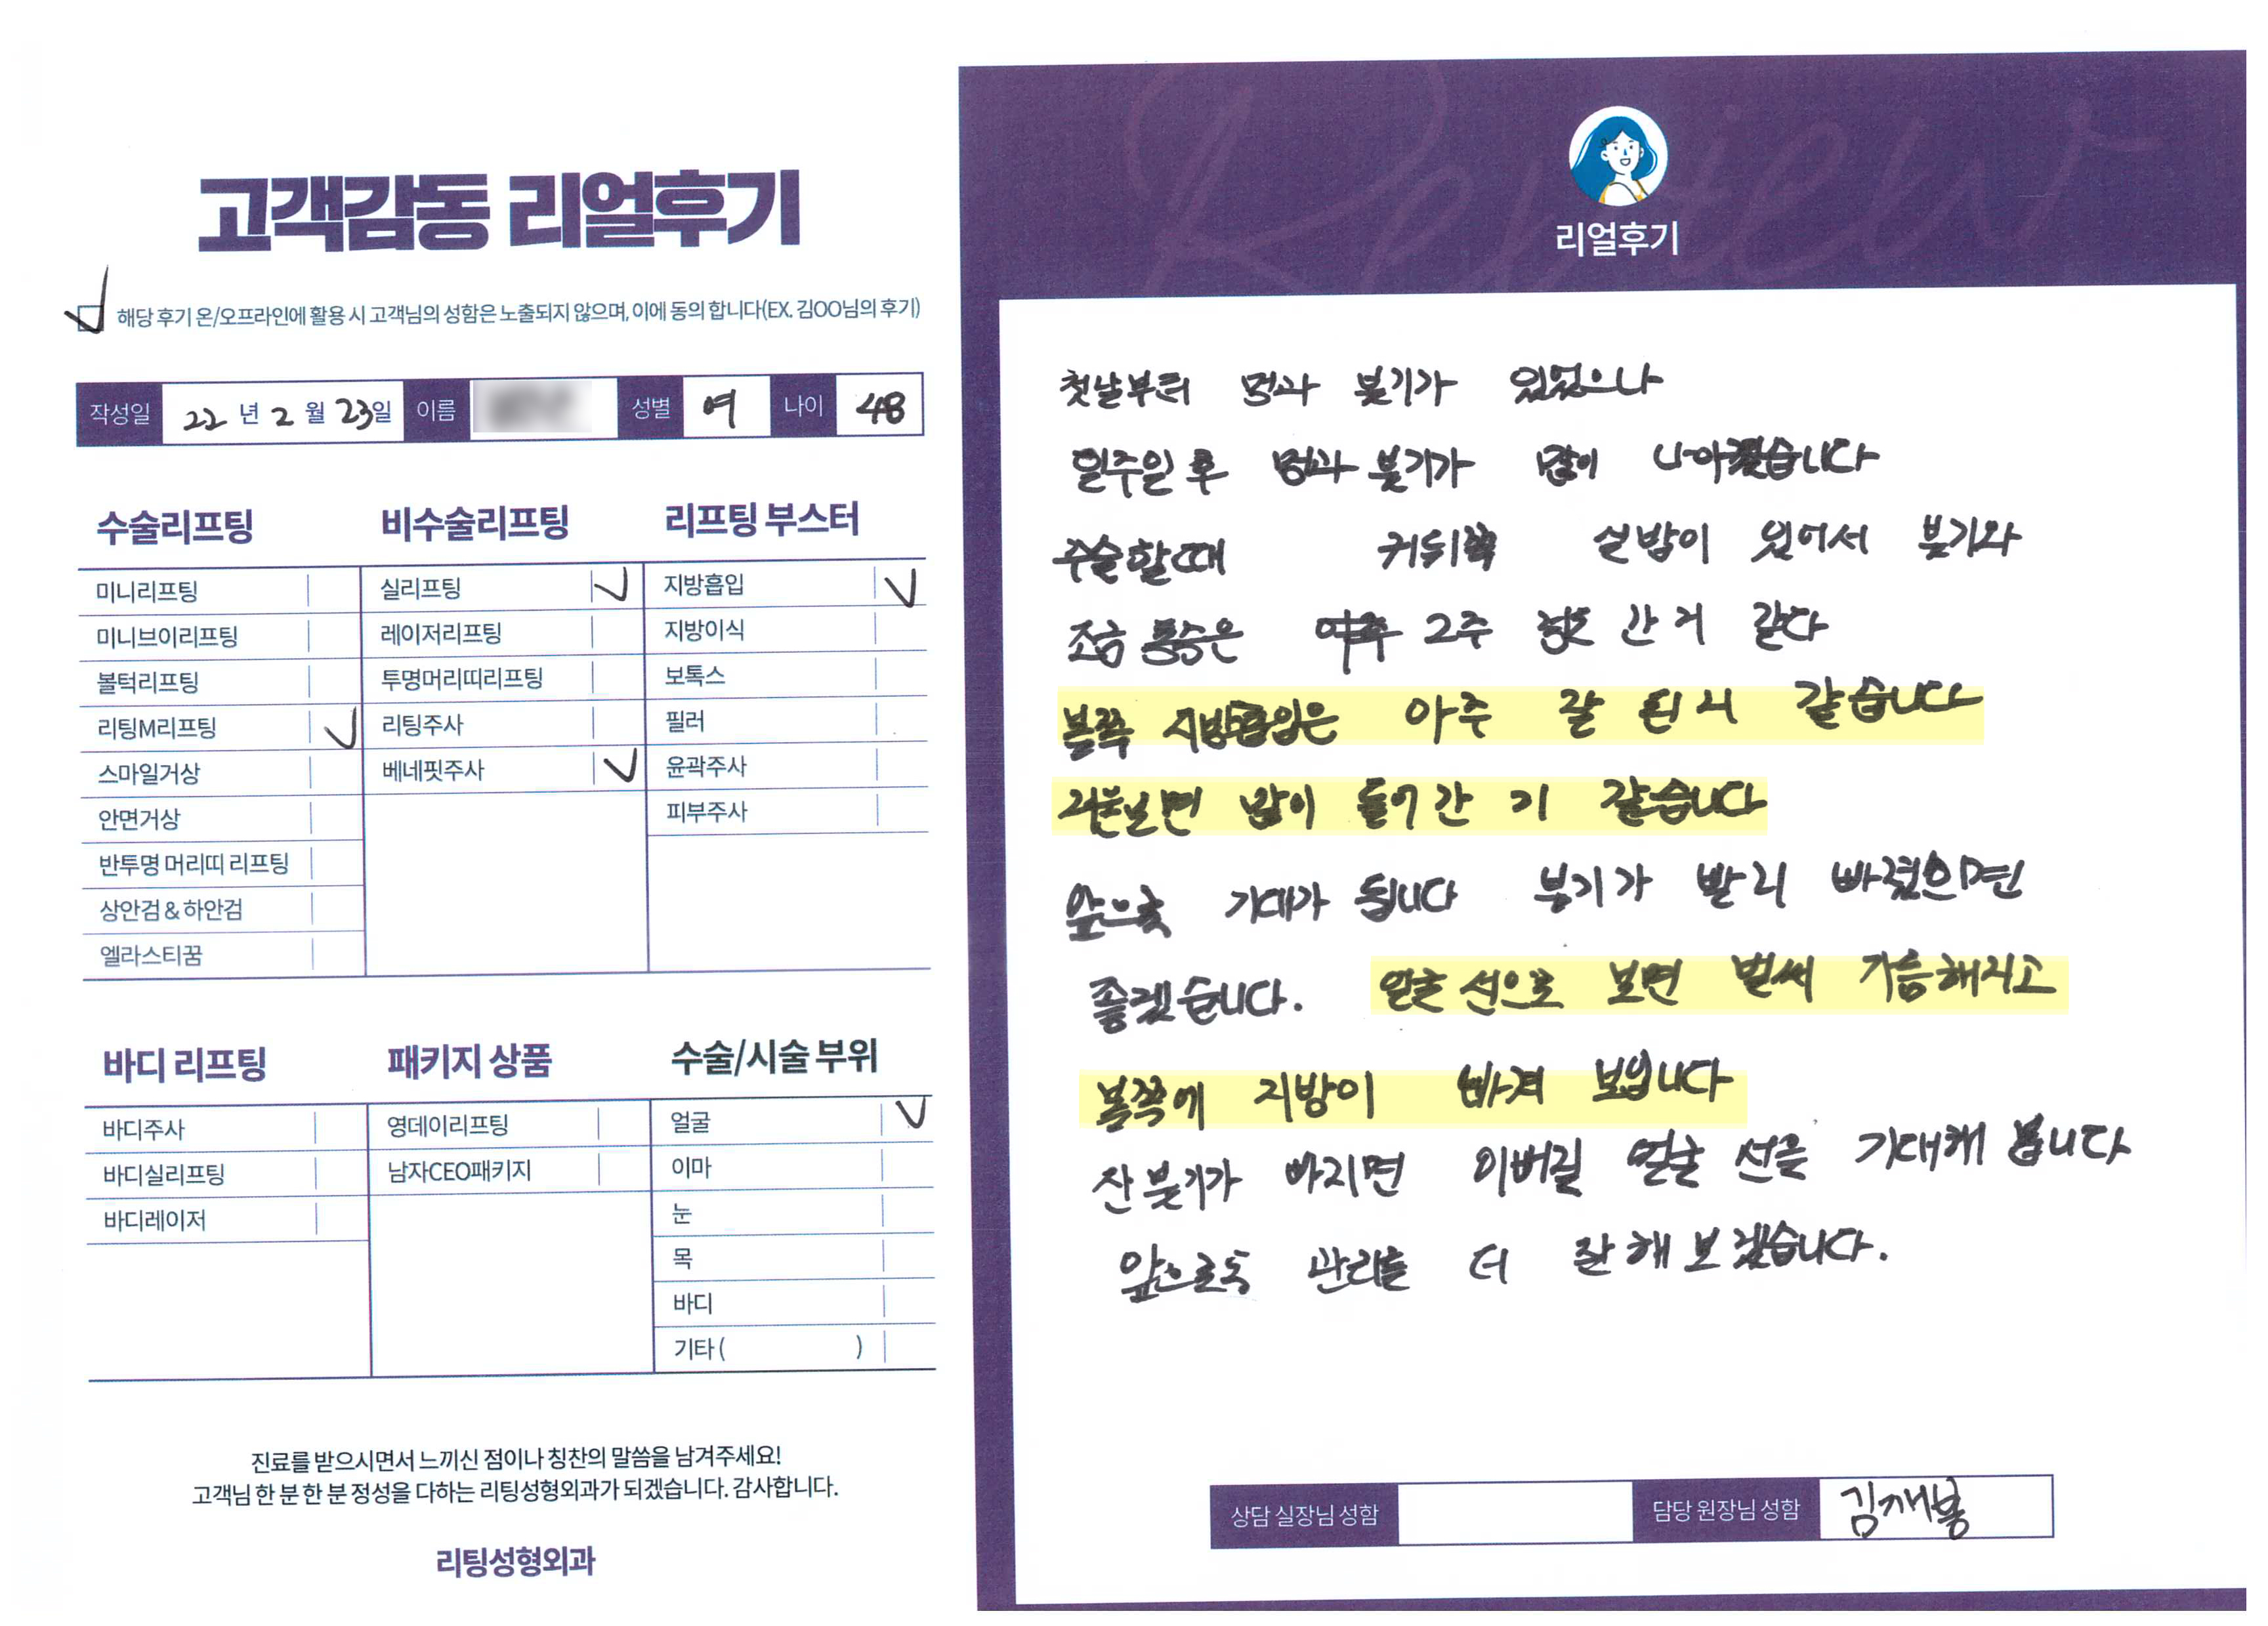 고객감동 리얼후기
해당 후기 온/오프라인에 활용 시 고객님의 성함은 노출되지 않으며, 이에 동의 합니다(EX. 김OO님의 후기)
작성일 22 년 2 월 23일 이름 성별 여 나이 48
수술리프팅
미니리프팅
미니브이리프팅
볼턱리프팅
리팅M리프팅
스마일거상
안면거상
반투명 머리띠 리프팅
상안검 & 하안검
엘라스티꿈
비수술리프팅
실리프팅
레이저리프팅
투명머리띠리프팅
리팅주사
베네핏주사
리프팅 부스터
지방흡입
지방이식
보톡스
필러
윤곽주사
피부주사
바디 리프팅
바디주사
바디실리프팅
바디레이저
패키지 상품
영데이리프팅
남자CEO패키지
수술/시술 부위
얼굴
이마
눈
목
바디
기타 ( )
진료를 받으시면서 느끼신 점이나 칭찬의 말씀을 남겨주세요!
고객님 한 분 한 분 정성을 다하는 리팅성형외과가 되겠습니다. 감사합니다.
리팅성형외과
Review
리얼후기
첫날부터 멍과 붓기가 있었으나
일주일 후 멍과 붓기가 많이 나아졌습니다
수술할때 귀뒤쪽 실밥이 있어서 붓기와
조금 통승은 2주 정도 간 거 같다
볼쪽 지방흡입은 아주 잘 된 거 같습니다
보면 많이 들어간 거 같습니다
앞으로 기대가 됩니다 붓기가 빨리 빠졌으면
좋겠습니다. 얼굴 선으로 보면 벌써 가름해지고
볼쪽에 지방이 빠져 보입니다
잔붓기가 빠지면 이버릴 얼굴 선을 기대해 봅니다
앞으로도 관리를 더 잘 해 보겠습니다.
상담 실장님 성함 담당 원장님 성함 김재봉